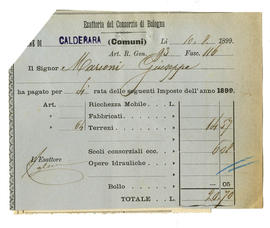 Esattoria del Consorzio di Bologna
DI CALDERARA (Comuni) Li 10. 8 1899.
Art. R. Gen. 93 Fasc. 116
Il Signor Marconi Giuseppe
ha pagato per 4 rata delle seguenti Imposte dell'anno 1899.
Art. Ricchezza Mobile L.
Fabbricati
64 Terreni L. 14.57
Scoli consorziali ecc.
Il Esattore
Opere Idrauliche
Bollo » — 05
TOTALE L. 20.70